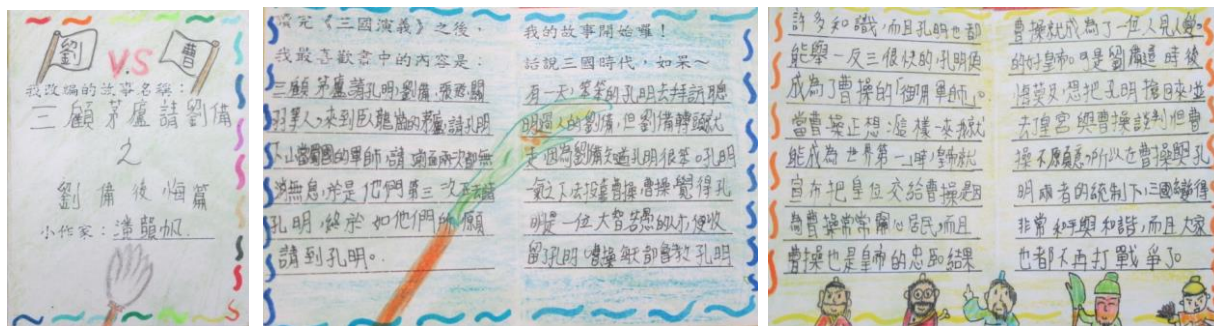 劉
VS
曹
我改編的故事名稱：
三顧茅廬請劉備
之
劉備後悔篇
小作家：潘顥帆
讀完《三國演義》之後，
我最喜歡書中的內容是：
三顧茅廬請孔明，劉備、張飛、關
羽等人，來到臥龍崗的茅廬，請孔明
下山當蜀國的軍師，請
於是他們第三次再去請
孔明，終於如他們所願
請到孔明。
我的故事開始囉！
話說三國時代，如果～
有一天，笨笨的孔明去拜訪聰
明過人的劉備，但劉備轉頭就
走，因為劉備知道孔明很笨。孔明
一氣之下去投靠曹操，曹操覺得孔
明是一位大智若愚的人，便收
留孔明，曹操每天都會教孔明
許多知識，而且孔明也都
能舉一反三，很快的，孔明便
成為了曹操的「御用軍師」。
當曹操正想：這樣一來，我就
能成為世界第一時，皇帝就
宣布把皇位交給曹操，是因
為曹操常常關心居民，而且
曹操也是皇帝的忠臣，結果
曹操就成為了一位人見人愛
的好皇帝。可是劉備這時後
悔莫及，想把孔明搶回來，並
去皇宮與曹操談判，但曹
操不願意，所以在曹操與孔
明兩者的統制下，三國變得
非常和平與和諧，而且大家
也都不再打戰爭了。